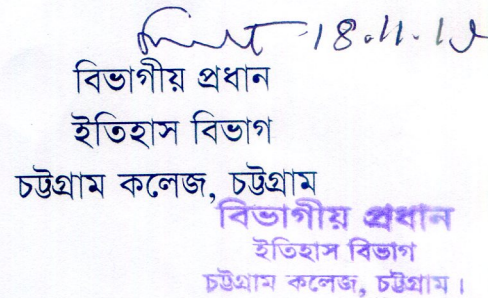 18.11.19
বিভাগীয় প্রধান
ইতিহাস বিভাগ
চট্টগ্রাম কলেজ, চট্টগ্রাম
বিভাগীয় প্রধান
ইতিহাস বিভাগ
চট্টগ্রাম কলেজ, চট্টগ্রাম।